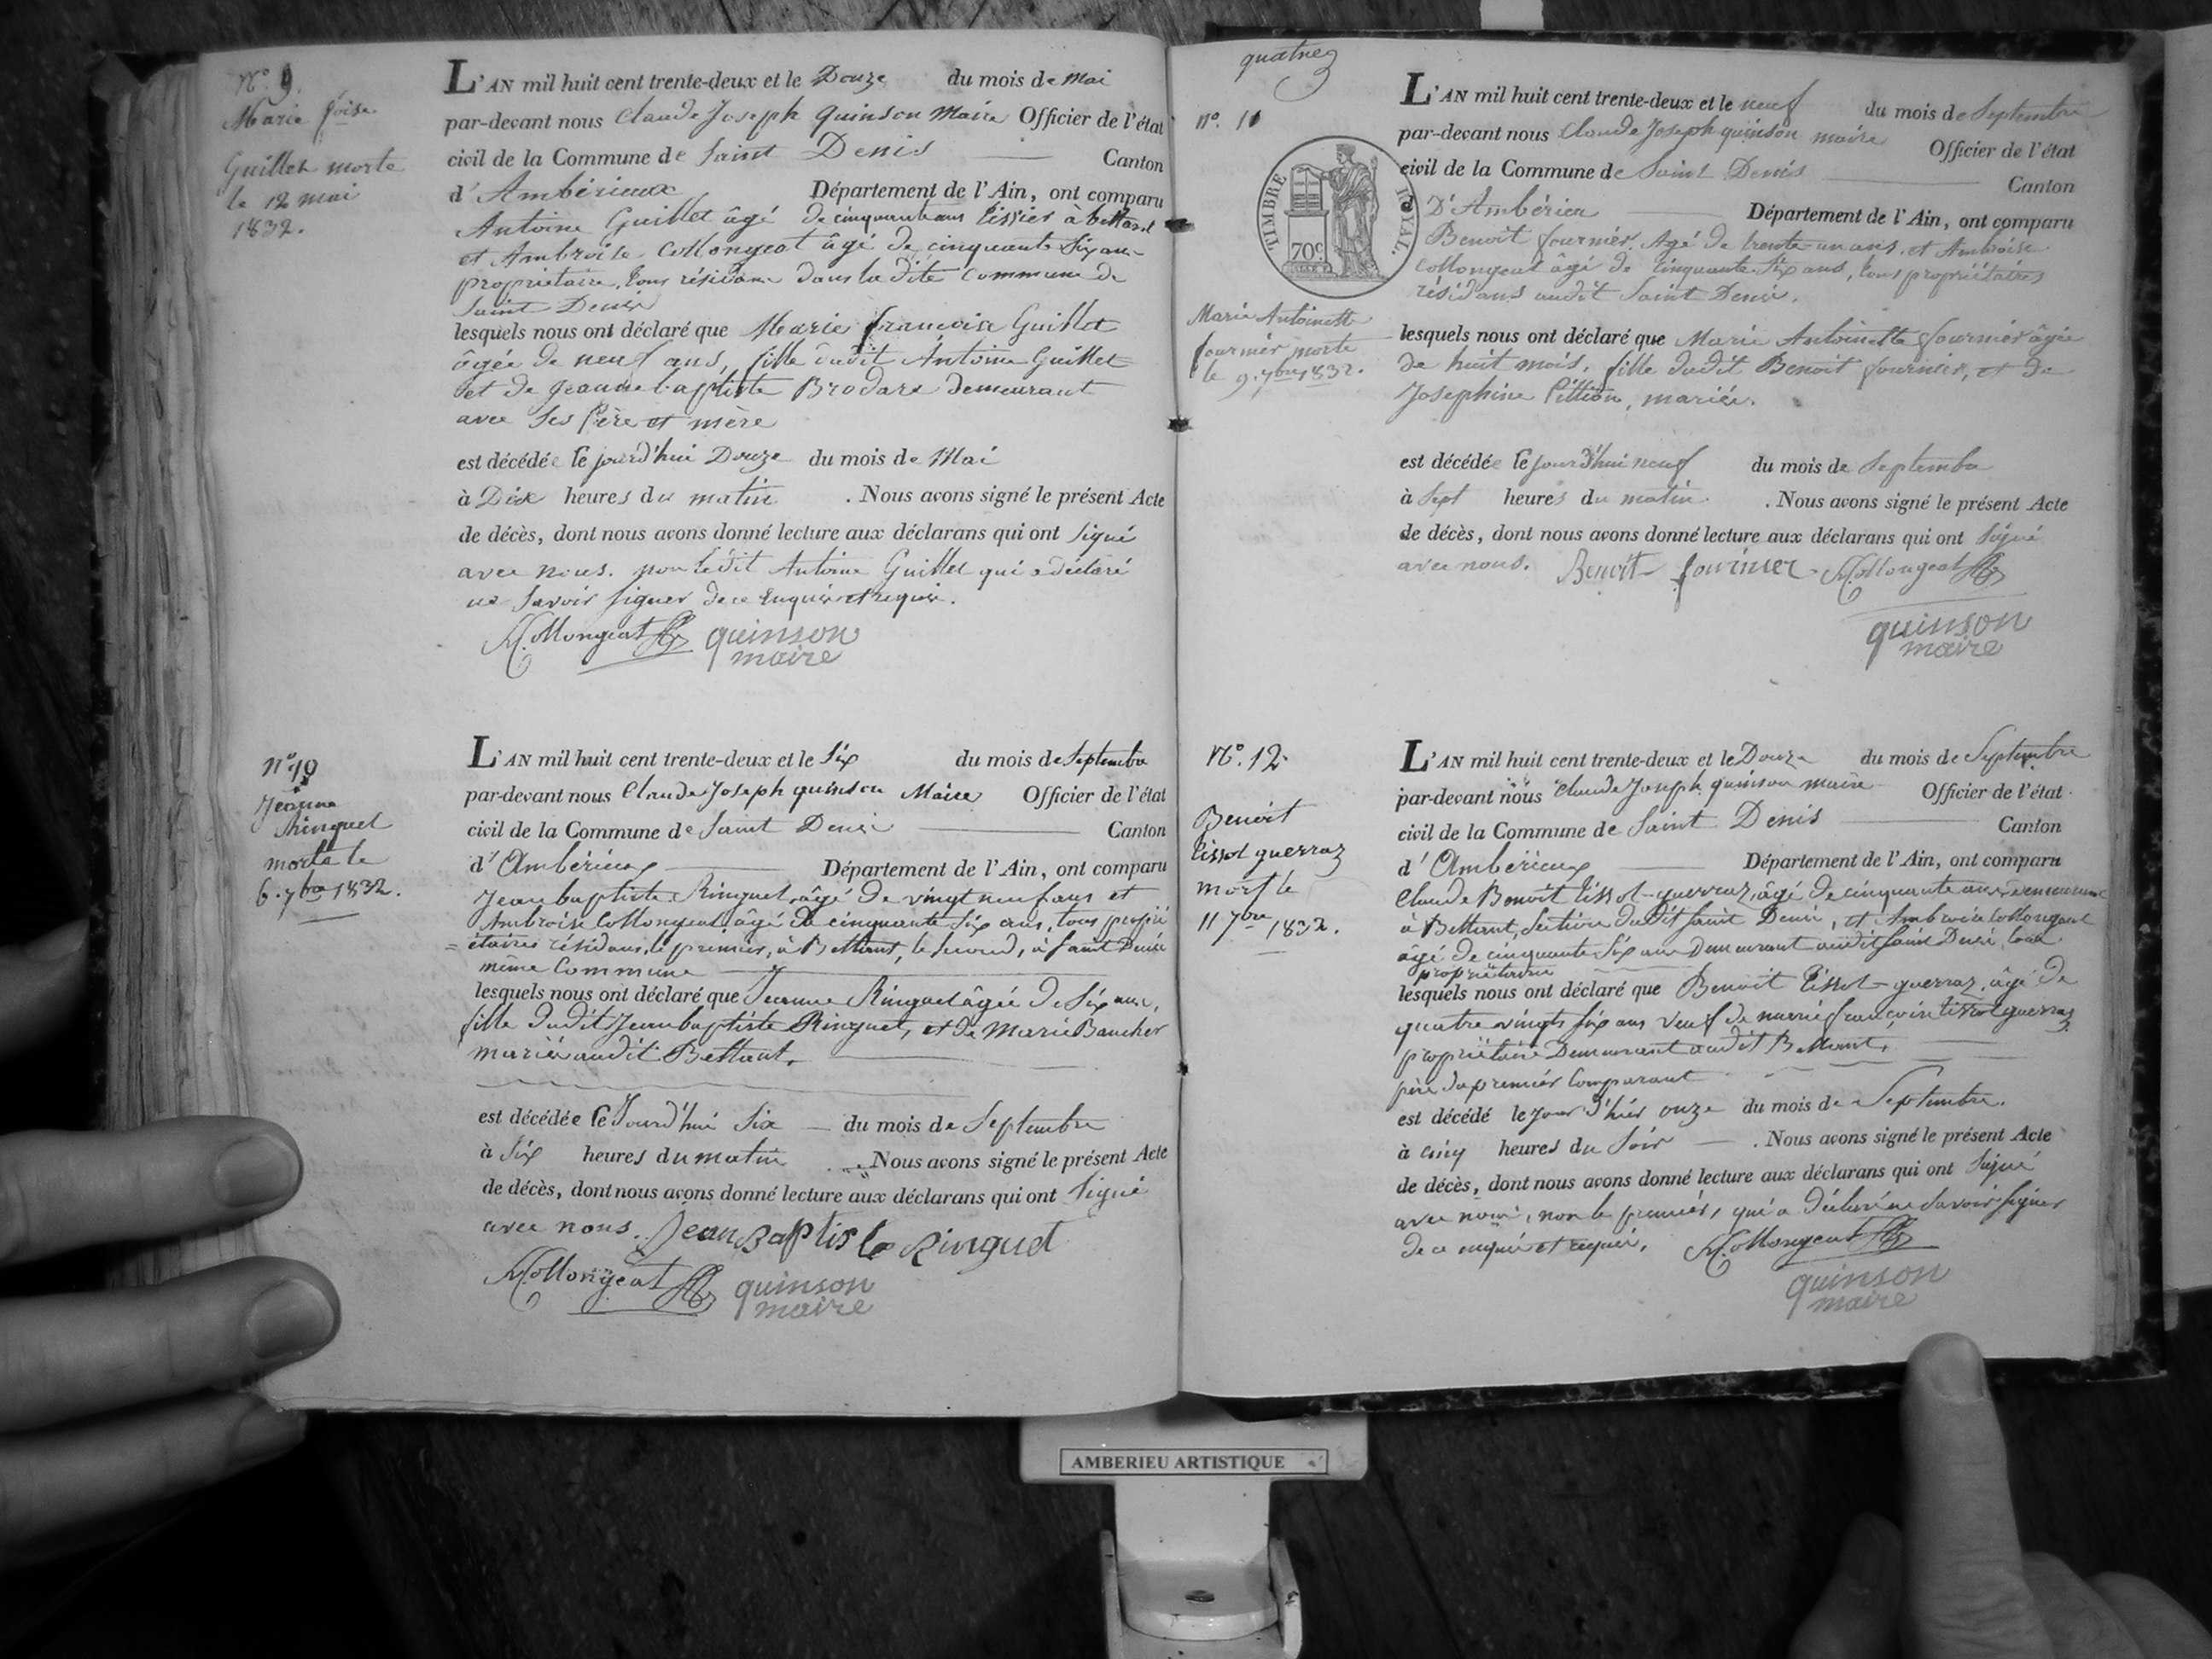 N° 9.
Marie foise
Guillet morte
le 12 mai
1832.
L'AN mil huit cent trente-deux et le Douze du mois de Mai
par-devant nous Claude Joseph quinson Maire Officier de l'état
civil de la Commune de Saint Denis Canton
d'Ambérieux Département de l'Ain, ont comparu
Antoine Guillet âgé de cinquante ans tissier à bettant
et Ambroise Collongeat âgé de cinquante six ans
propriétaire, tous résidans dans la dite commune de
Saint Denis
lesquels nous ont déclaré que Marie francoise Guillet
âgée de neuf ans, fille dudit Antoine Guillet
et de Jeanne baptiste Brodare demeurant
avec ses père et mère
est décédée le jourd'hui Douze du mois de Mai
à Dix heures du matin . Nous avons signé le présent Acte
de décès, dont nous avons donné lecture aux déclarans qui ont signé
avec nous. non ledit Antoine Guillet qui a déclaré
ne savoir signer de ce enquis et requis.
Collongeat quinson
maire
n° 10
Jeanne
Ringuet
morte le
6. 7bre 1832.
L'AN mil huit cent trente-deux et le Six du mois de Septembre
par-devant nous Claude Joseph quinson Maire Officier de l'état
civil de la Commune de Saint Denis Canton
d'Ambérieux Département de l'Ain, ont comparu
Jean baptiste Ringuet, âgé de vingt neuf ans et
Ambroise Collongeat, âgé de cinquante six ans, tous propri
=étaires résidans, le premier, à Bettant, le second, à Saint Denis
même Commune
lesquels nous ont déclaré que Jeanne Ringuet âgée de six ans,
fille dudit Jean baptiste Ringuet, et de Marie Baucher
mariés audit Bettant.
est décédée le Jourd'hui Six du mois de Septembre
à Six heures du matin . Nous avons signé le présent Acte
de décès, dont nous avons donné lecture aux déclarans qui ont signé
avec nous. Jean Baptiste Ringuet
Collongeat quinson
maire
quatre
n°. 11
TIMBRE ROYAL.
70c.
Marie Antoinette
fournier morte
le 9. 7bre 1832.
L'AN mil huit cent trente-deux et le neuf du mois de Septembre
par-devant nous Claude Joseph quinson maire Officier de l'état
civil de la Commune de Saint Denis Canton
D'Ambérieu Département de l'Ain, ont comparu
Benoit fournier. Agé de trente un ans, et Ambroise
Collongeat âgé de cinquante six ans, tous propriétaires
résidans audit Saint Denis.
lesquels nous ont déclaré que Marie Antoinette fournier âgée
de huit mois, fille dudit Benoit fournier, et de
Josephine Pittion, mariés.
est décédée le jourd'hui neuf du mois de Septembre
à Sept heures du matin . Nous avons signé le présent Acte
de décès, dont nous avons donné lecture aux déclarans qui ont signé
avec nous. Benoit fournier Collongeat
quinson
maire
N°. 12.
Benoit
tissot guerraz
mort le
11 7bre 1832.
L'AN mil huit cent trente-deux et le Douze du mois de Septembre
par-devant nous Claude Joseph quinson maire Officier de l'état
civil de la Commune de Saint Denis Canton
d'Ambérieux Département de l'Ain, ont comparu
Claude Benoit tissot-guerraz, âgé de cinquante ans, demeurant
à Bettant, Section dudit Saint Denis, et Ambroise Collongeat
âgé de cinquante six ans Demeurant audit Saint Denis, tous
propriétaires
lesquels nous ont déclaré que Benoit tissot-guerraz, âgé de
quatre vingts six ans veuf de marie francoise tissot guerraz
propriétaire Demeurant audit Bettant,
père du premier Comparant
est décédé le jour d'hier onze du mois de Septembre.
à cinq heures du soir . Nous avons signé le présent Acte
de décès, dont nous avons donné lecture aux déclarans qui ont signé
avec nous, non le premier, qui a déclaré ne savoir signer
de ce enquis et requis. Collongeat
quinson
maire
AMBERIEU ARTISTIQUE